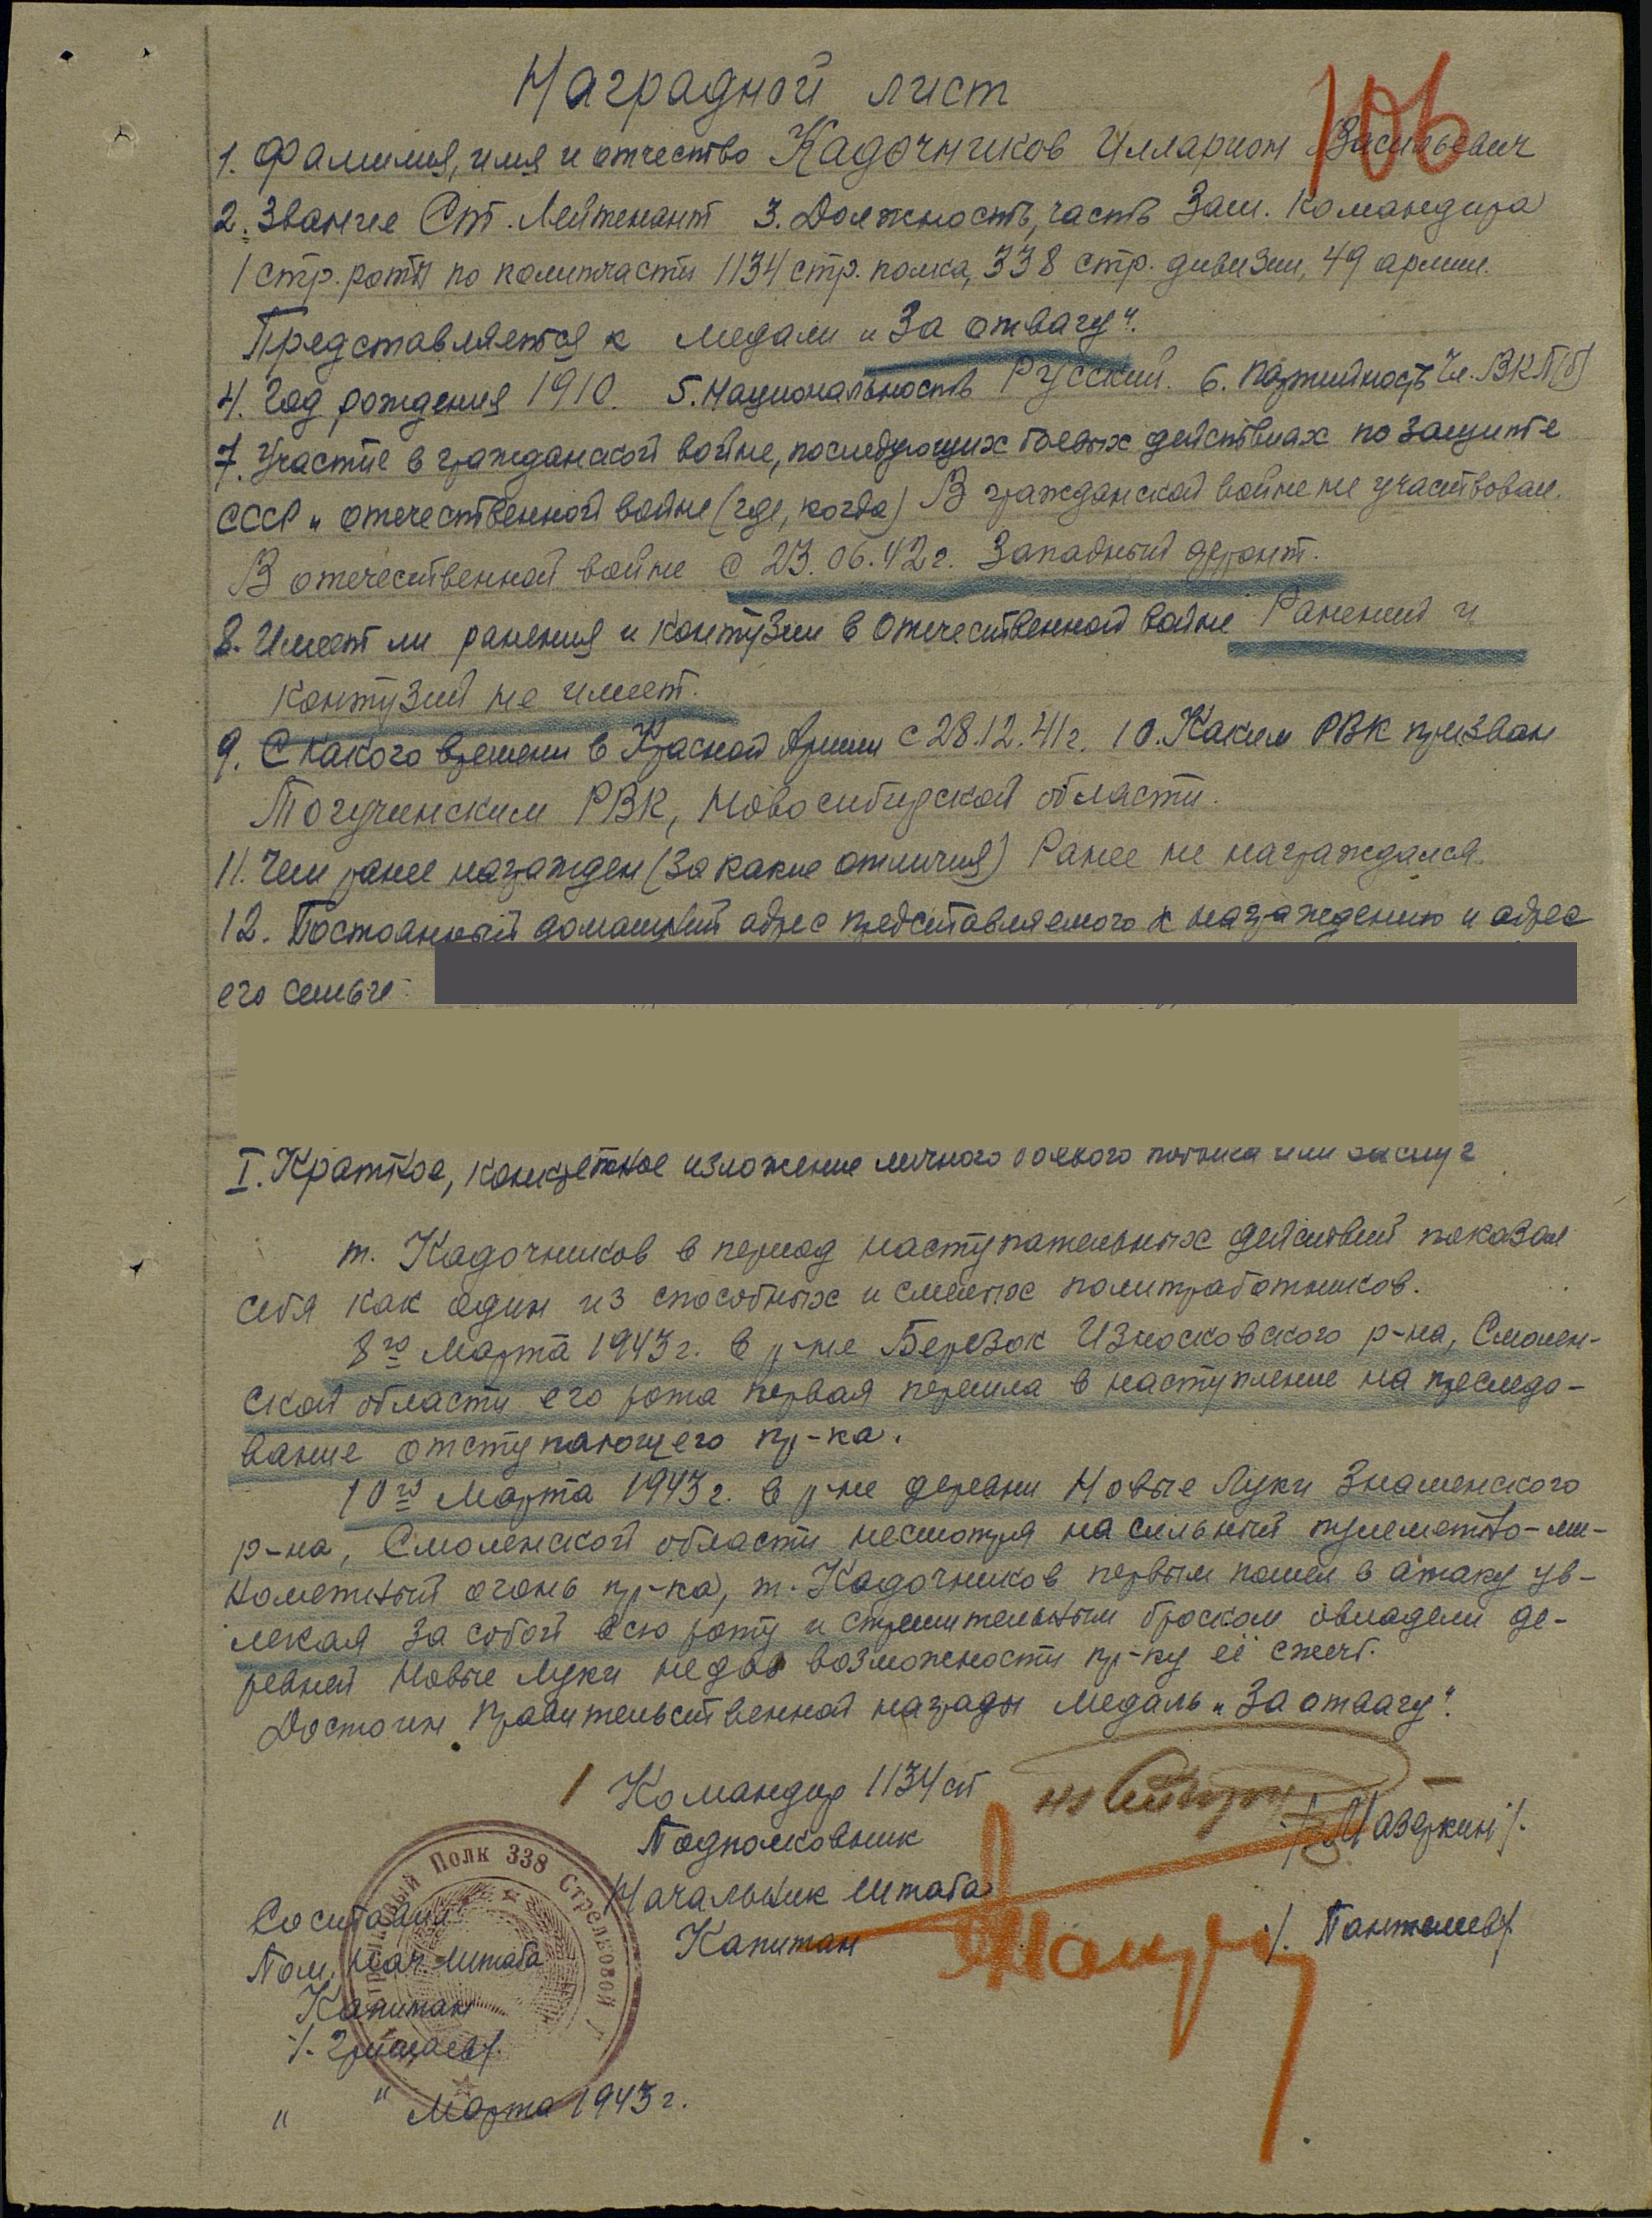 Наградной лист
106
1. Фамилия, имя и отчество Кадочников Илларион Васильевич
2. Звание Ст. Лейтенант 3. Должность, часть Зам. Командира
1 стр. роты по политчасти 1134 стр. полка, 338 стр. дивизии, 49 армии.
Представляется к медали „За отвагу".
4. Год рождения 1910. 5. Национальность Русский. 6. Партийность Чл. ВКП(б)
7. Участие в гражданской войне, последующих боевых действиях по защите
СССР и отечественной войне (где, когда) В гражданской войне не участвовал.
В отечественной войне с 23.06.42г. Западный фронт.
8. Имеет ли ранения и контузии в Отечественной войне Ранений и
контузий не имеет.
9. С какого времени в Красной Армии с 28.12.41г. 10. Каким РВК призван
Тогучинским РВК, Новосибирской области.
11. Чем ранее награжден (за какие отличия) Ранее не награждался.
12. Постоянный домашний адрес представляемого к награждению и адрес
его семьи
I. Краткое, конкретное изложение личного боевого подвига или заслуг
т. Кадочников в период наступательных действий показал
себя как один из способных и смелых политработников.
8го Марта 1943г. в р-не Березок Износковского р-на, Смолен-
ской области его рота первая перешла в наступление на преследо-
вание отступающего пр-ка.
10го Марта 1943г. в р-не деревни Новые Луки Знаменского
р-на, Смоленской области несмотря на сильный пулеметно-ми-
нометный огонь пр-ка, т. Кадочников первым пошел в атаку ув-
лекая за собой всю роту и стремительным броском овладели де-
ревней Новые Луки не дав возможности пр-ку её сжечь.
Достоин Правительственной награды медаль „За отвагу".
Командир 1134 сп
Подполковник /Мазуркин/.
Начальник Штаба
Капитан /. Пантелеев/.
Полк 338 Стрелковой
Составил
Пом. Нач. Штаба
Капитан
" " Марта 1943г.